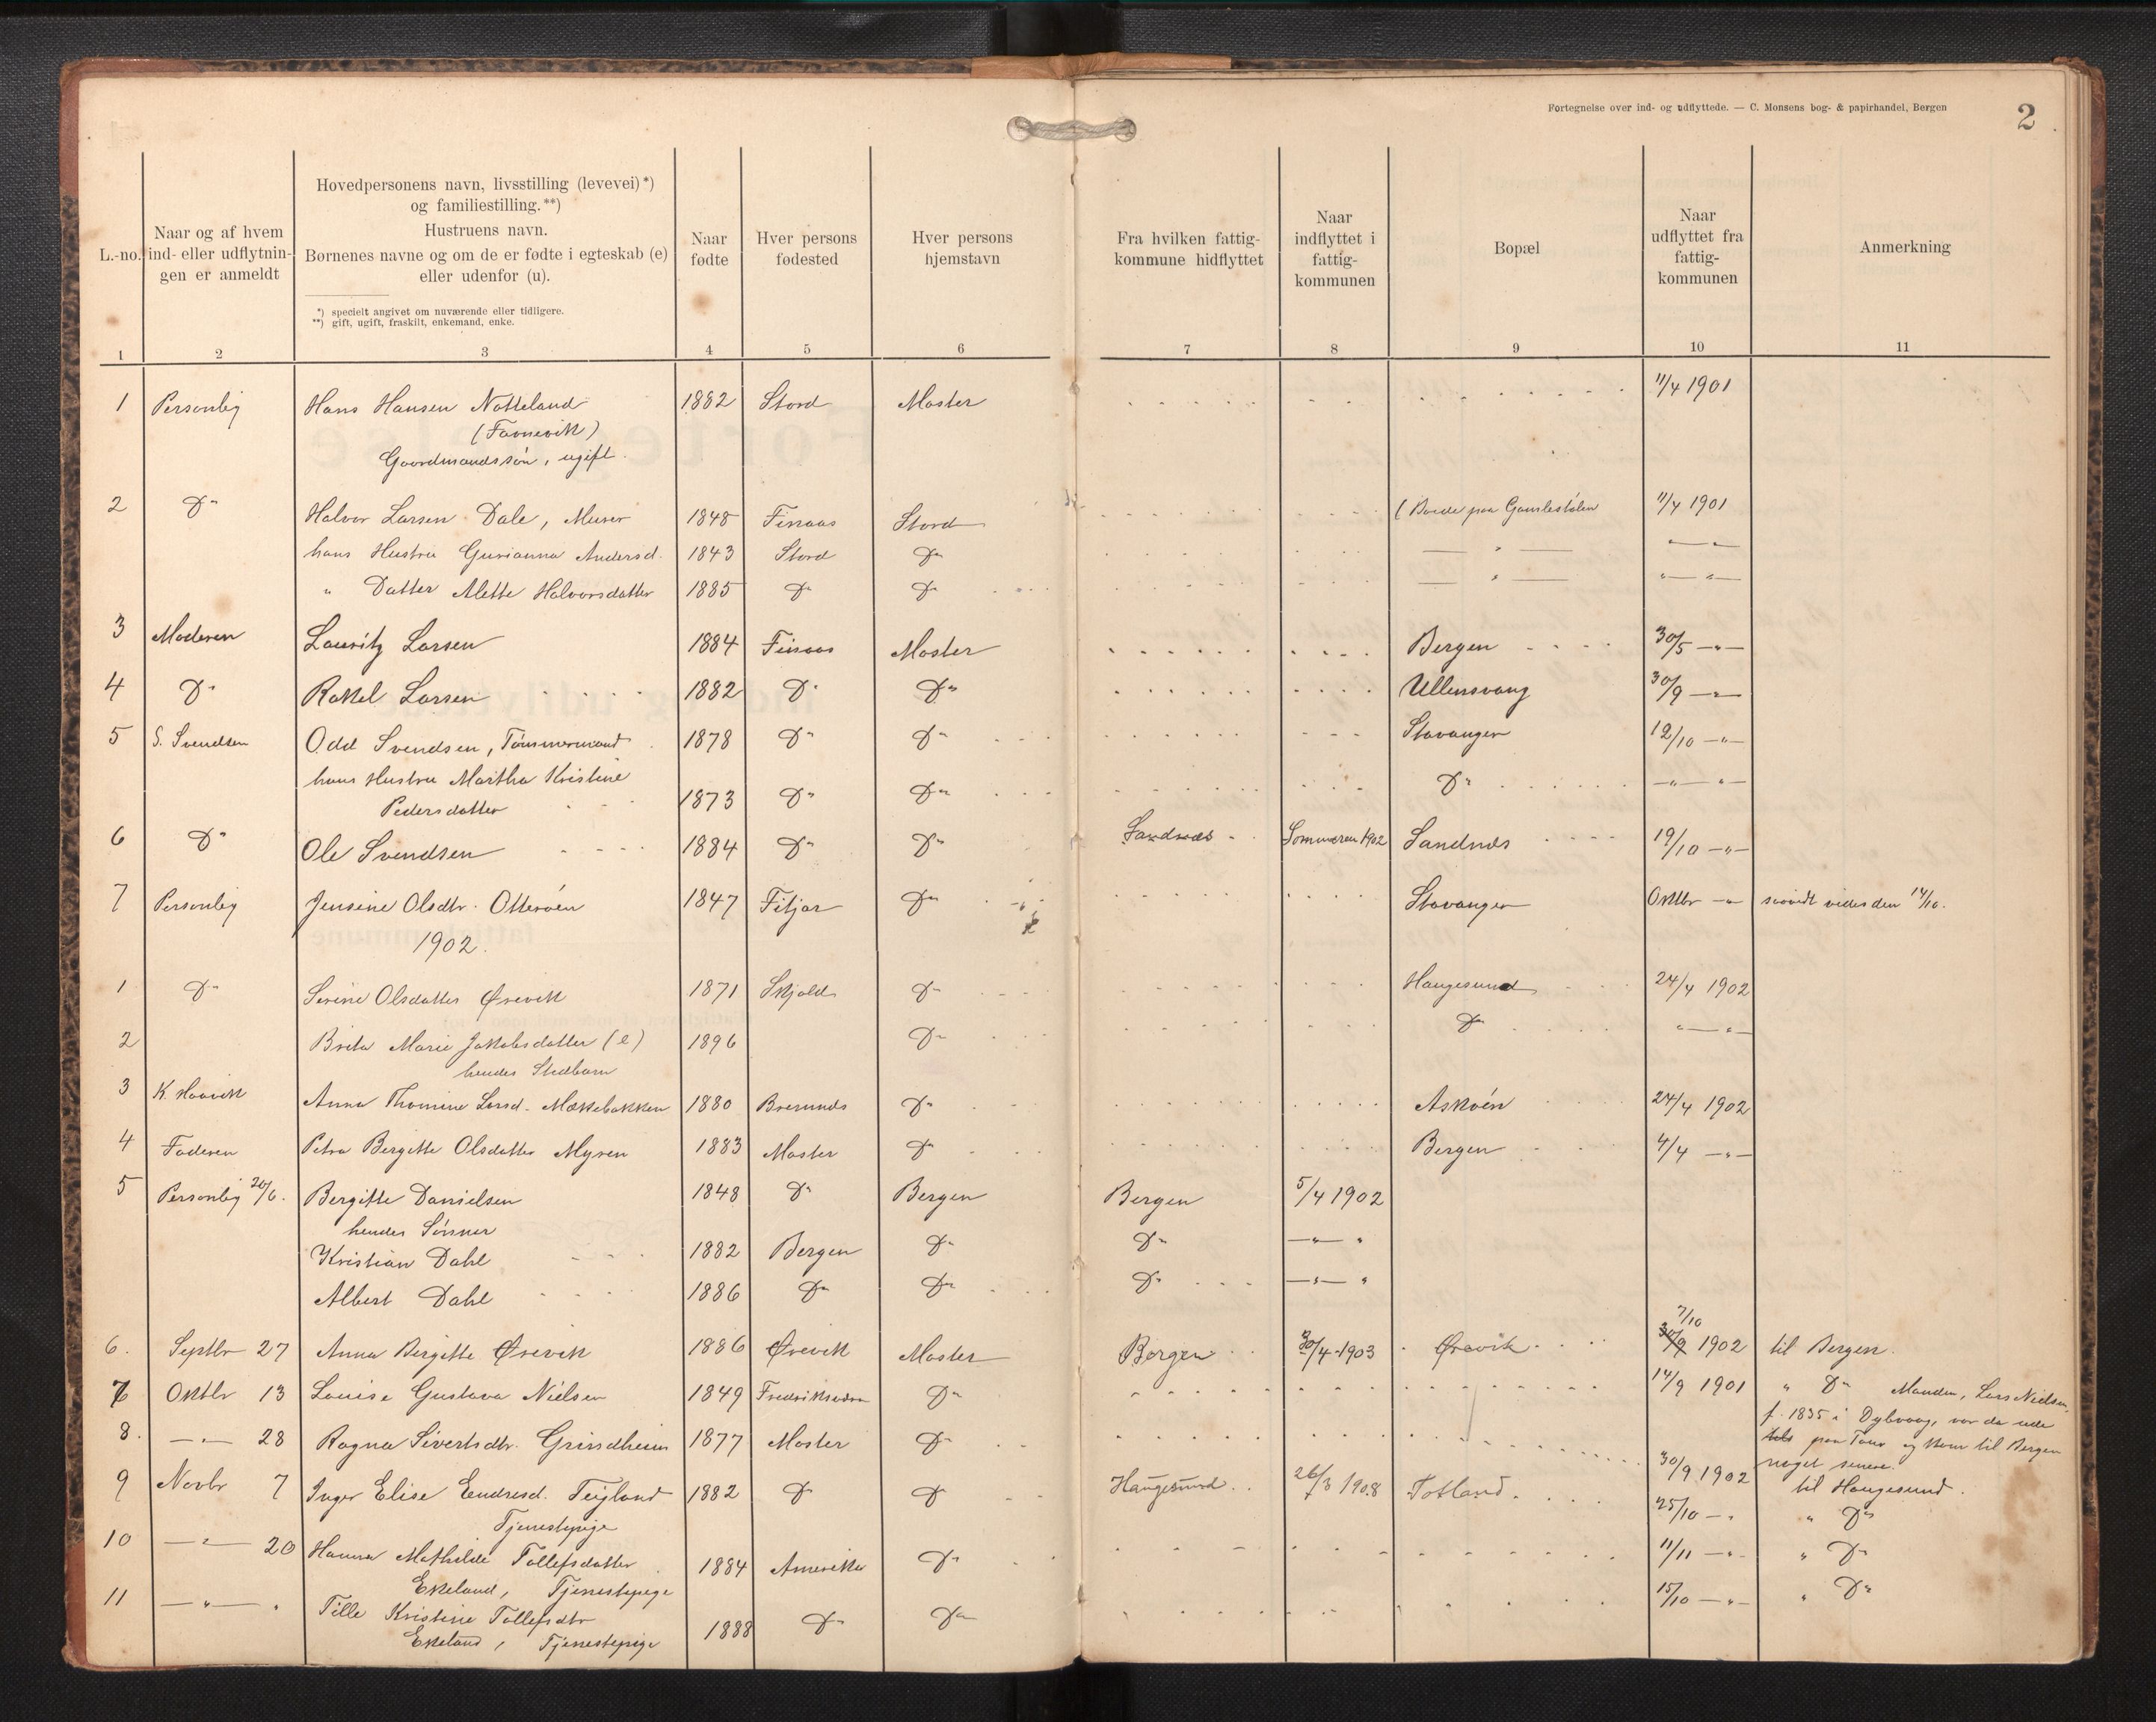 Fortegnelse over ind- og udflyttede. — C. Monsens bog- & papirhandel, Bergen
2
L.-no.
Naar og af hvem ind- eller udflytningen er anmeldt
Hovedpersonens navn, livsstilling (levevei)*) og familiestilling.**)
Hustruens navn.
Børnenes navne og om de er fødte i egteskab (e) eller udenfor (u).
*) specielt angivet om nuværende eller tidligere.
**) gift, ugift, fraskilt, enkemand, enke.
Naar fødte
Hver persons fødested
Hver persons hjemstavn
Fra hvilken fattigkommune hidflyttet
Naar indflyttet i fattigkommunen
Bopæl
Naar udflyttet fra fattigkommunen
Anmerkning
1 2 3 4 5 6 7 8 9 10 11
1 Personlig Hans Hansen Notteland 1882 Stord Moster 11/4 1901
(Favnevik)
Gaardmandssøn, ugift
2 Do Halvor Larsen Dale, Murer 1848 Finaas Stord (Boede paa Gamlestølen 11/4 1901
hans Hustru Gurianna Andersd. 1843 Stord Do — " — — " —
" Datter Alette Halvorsdatter 1885 Do Do — " — " — " —
3 Moderen Lauritz Larsen 1884 Finaas Moster Bergen 30/5 — " —
4 Do Rakel Larsen 1882 Do Do Ullensvang 30/9 — " —
5 S. Svendsen Odd Svendsen, Tømmermand 1878 Do Do Stavanger 12/10 — " —
hans Hustru Martha Kristine
Pedersdatter 1873 Do Do Do — " — " —
6 Do Ole Svendsen 1884 Do Do Sandnæs Sommeren 1902 Sandnæs 19/10 — " —
7 Personlig Jensine Olsdtr. Otterøen 1847 Fitjar Do Stavanger Oktbr — " — saavidt vides den 14/10.
1902.
1 Do Serine Olsdatter Ørevik 1871 Skjold Do Haugesund 24/4 1902
2 Brita Marie Jakobsdatter (e) 1896 Do Do " — " —
hendes Stedbarn
3 K. Haavik Anna Thomine Larsd. Mækebakken 1880 Bremnæs Do Askøen 24/4 1902
4 Faderen Petra Bergitte Olsdatter Myren 1883 Moster Do Bergen 4/4 — " —
5 Personlig 20/6. Bergitte Danielsen 1848 Do Bergen Bergen 5/4 1902
hendes Sønner
Kristian Dahl 1882 Bergen Do Do — " — "
Albert Dahl 1886 Do Do Do — " — "
7/10
6. Septbr 27 Anna Bergitte Ørevik 1886 Ørevik Moster Bergen 30/4 - 1903 Ørevik 30/9 1902 til Bergen.
7 Oktbr 13 Louise Gustava Nielsen 1849 Do 14/9 1901 " Do Manden, Lars Nielsen,
f. 1835 i Dybvaag, var da ude
paa Tour og kom til Bergen
noget senere.
8. — " — 28 Ragna Sivertsdtr. Grindheim 1877 Moster Do 30/9 1902 til Haugesund.
9 Novbr 7 Inger Elise Endresd. Teigland 1882 Do Do Haugesund 26/3 1908 Totland 25/10 — " " Do
Tjenestepige
10 — " — 20 Hanna Mathilde Tollefsdatter 1884 Amerika Do 11/11 — " — " Do
Ekeland, Tjenestepige
11 — " — " Tille Kristine Tollefsdtr 1888 Do Do 15/10 — " — " Do
Ekeland, Tjenestepige